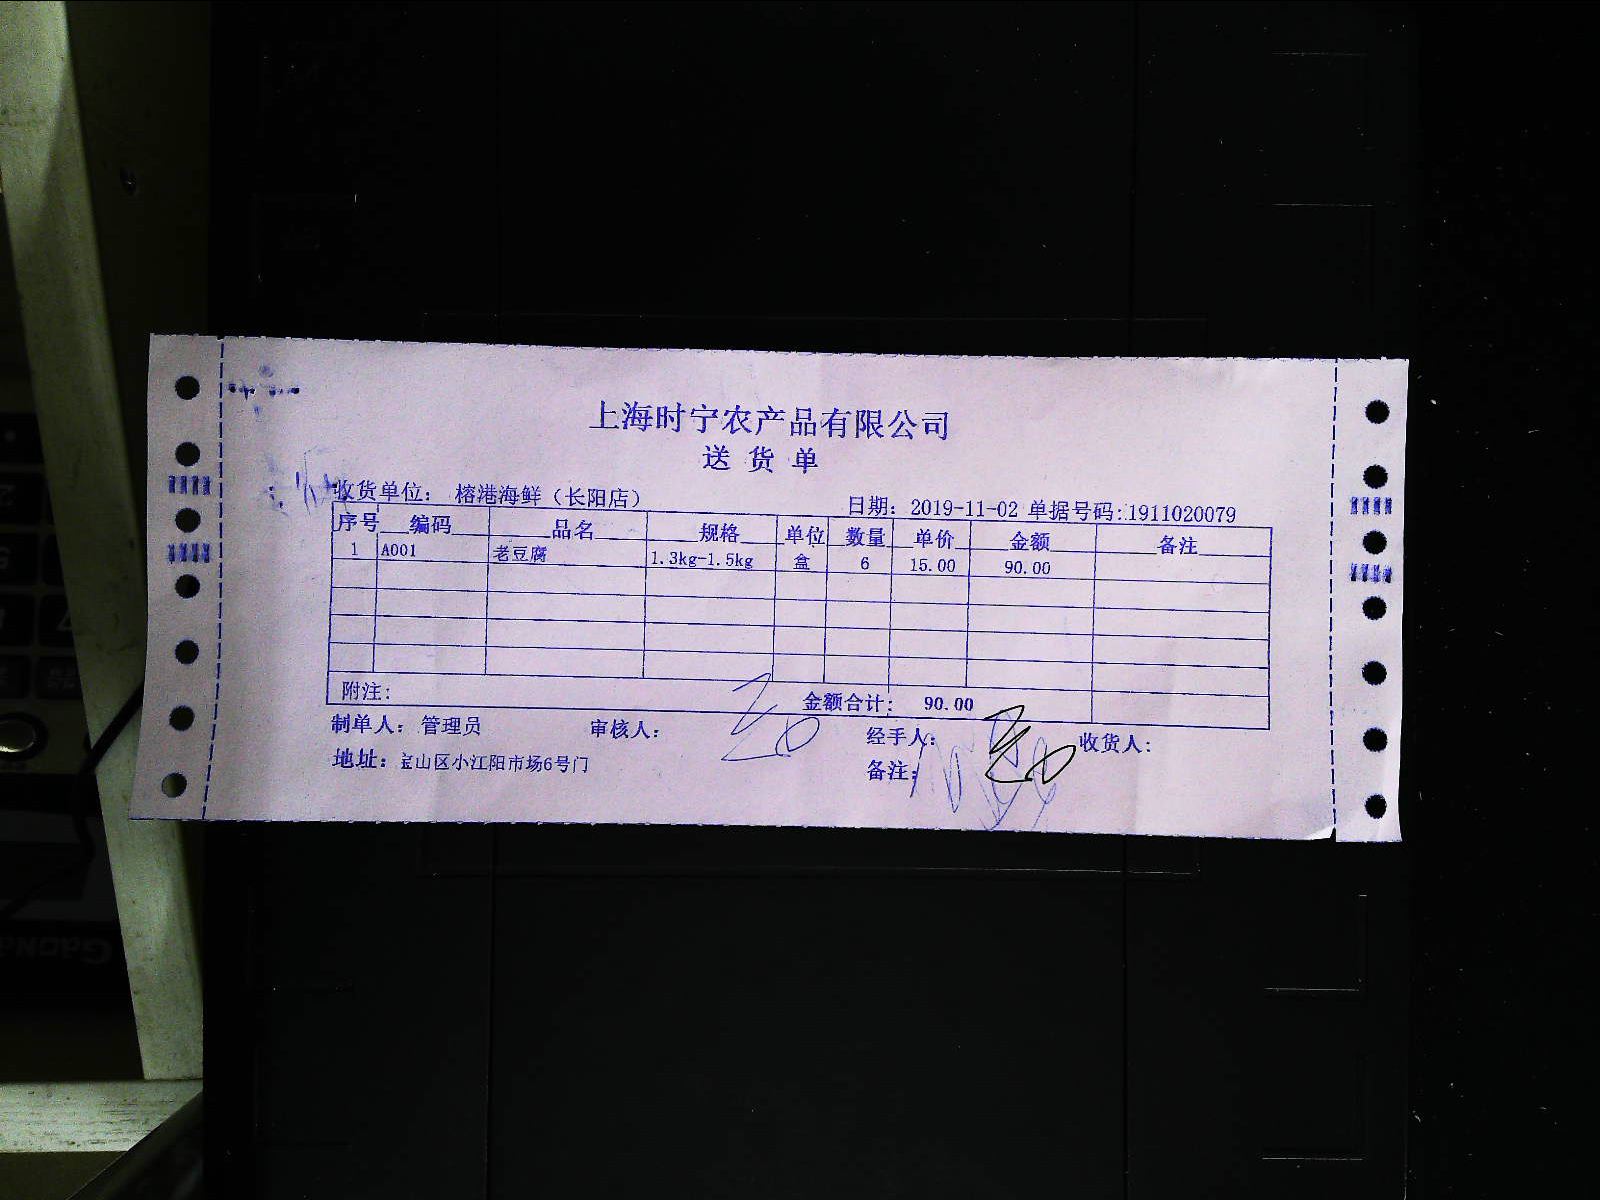 上海时宁农产品有限公司
送货单
收货单位： 榕港海鲜（长阳店） 日期： 2019-11-02 单据号码:1911020079
序号 编码 品名 规格 单位 数量 单价 金额 备注
1 A001 老豆腐 1.3kg-1.5kg 盒 6 15.00 90.00
附注: 金额合计: 90.00
制单人： 管理员 审核人: 经手人: 收货人:
地址： 宝山区小江阳市场6号门 备注: